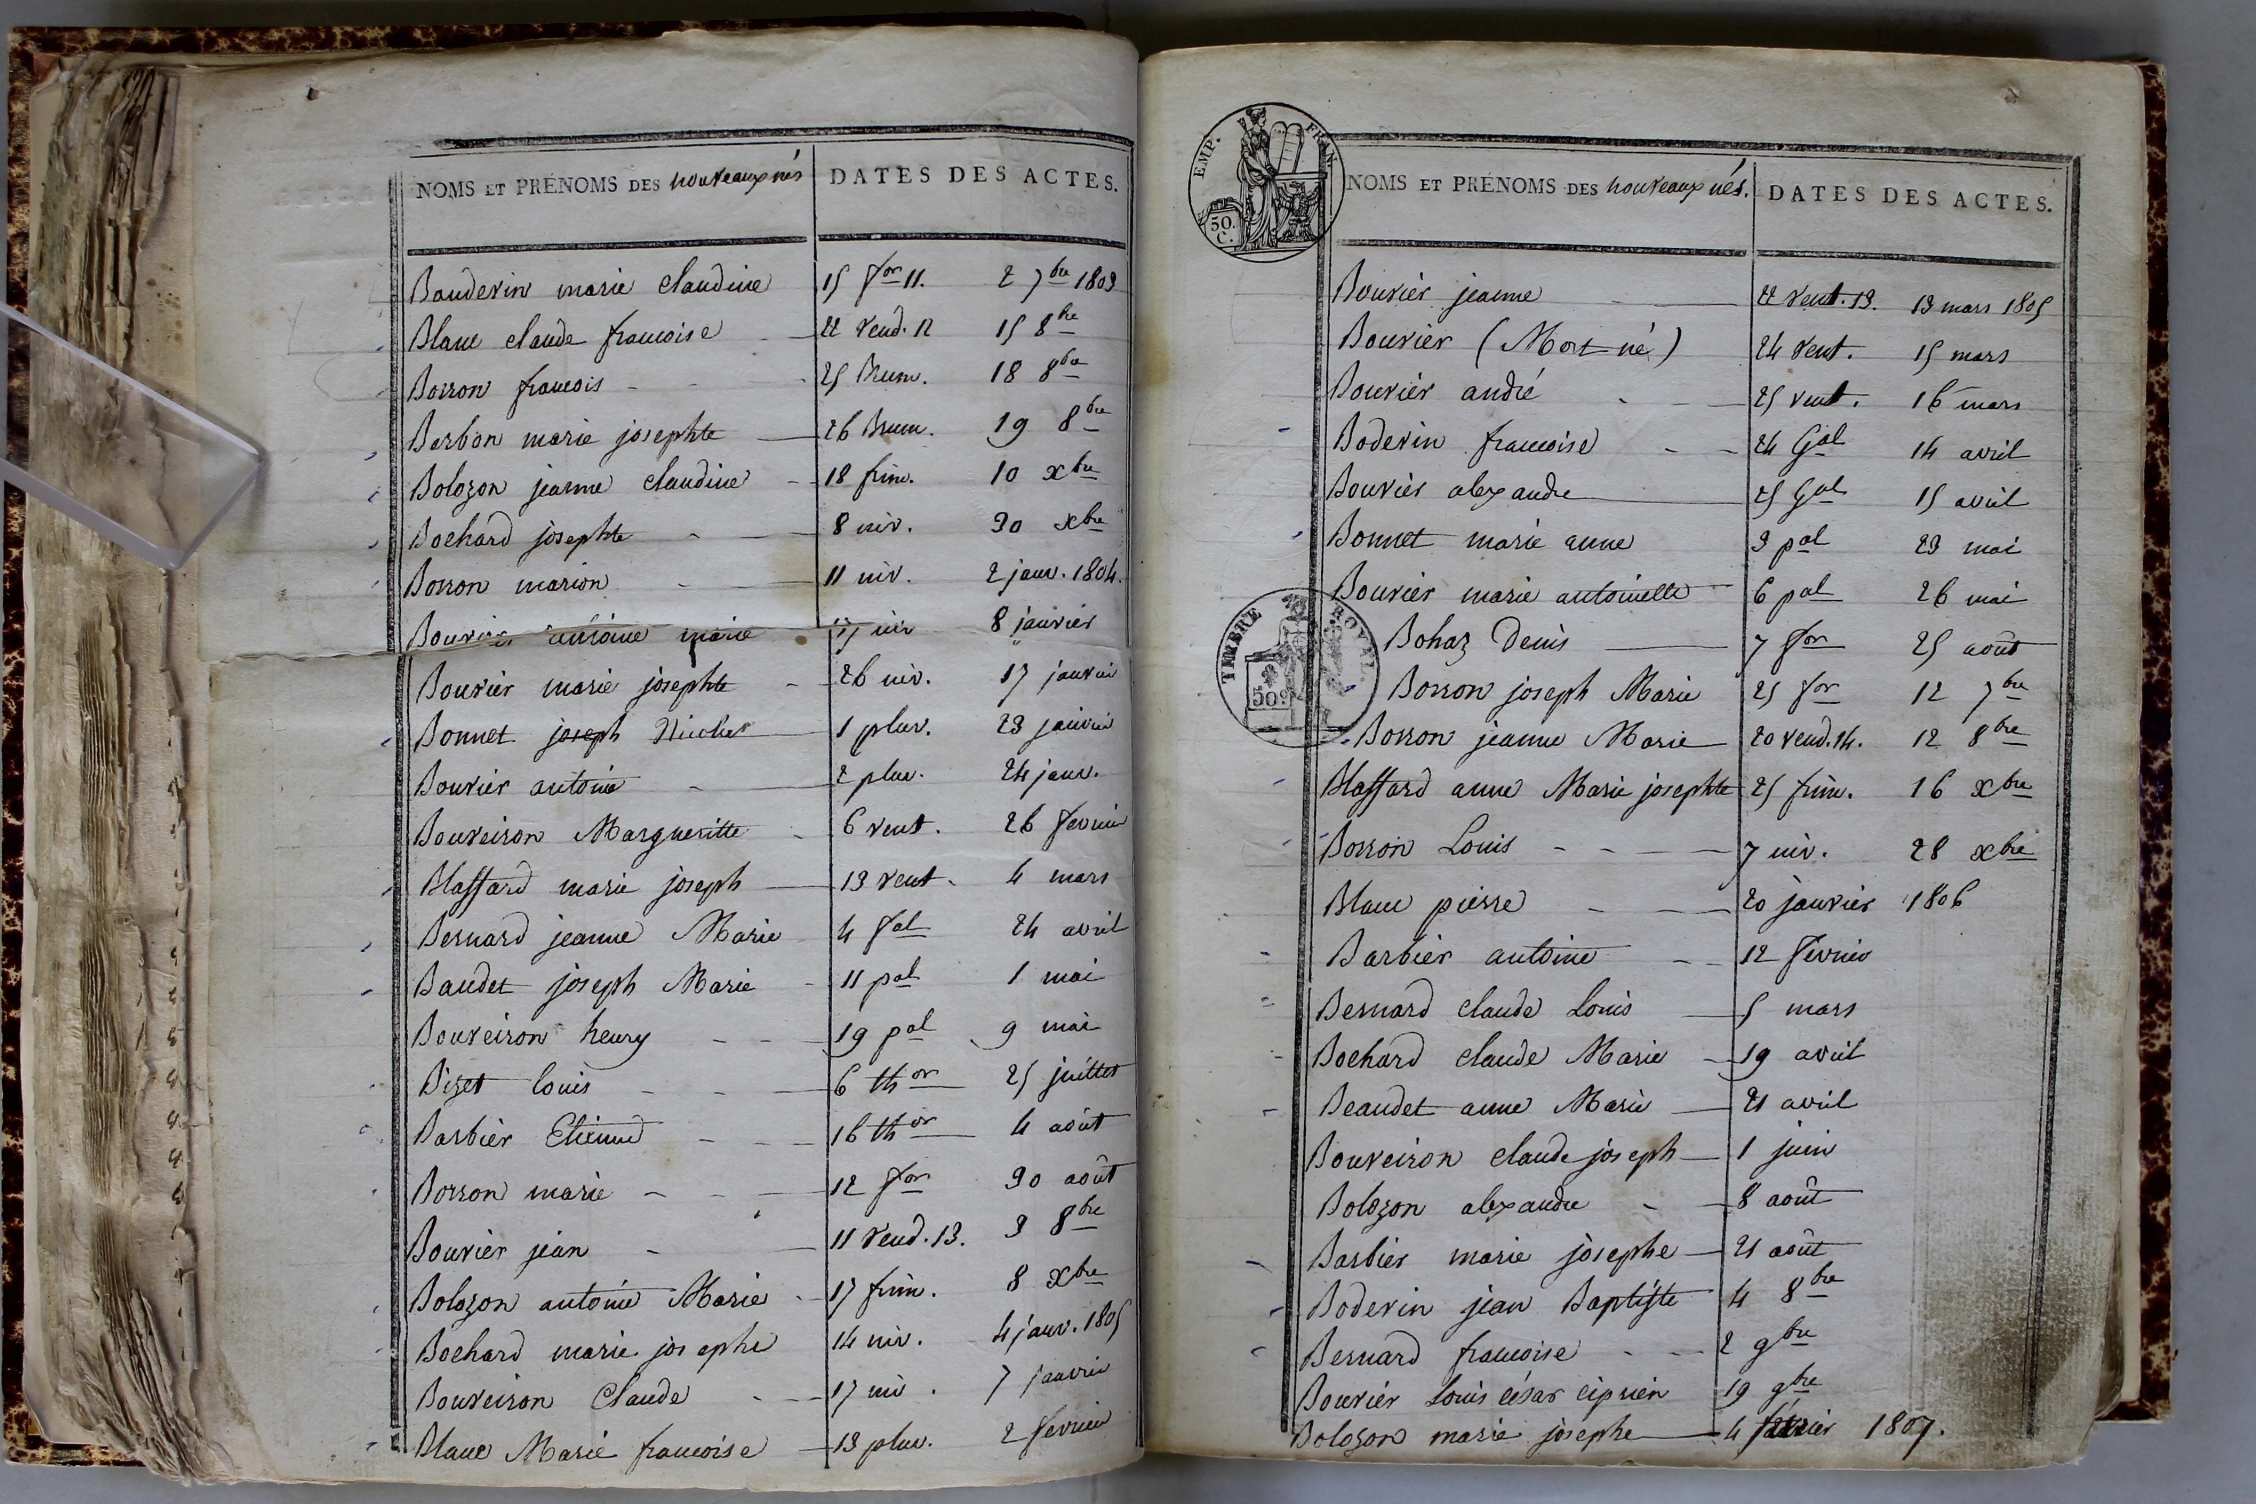 NOMS ET PRÉNOMS DES nouveaux nés DATES DES ACTES.
Bauderin marie claudine 15 for 11. 2 7bre 1803
Blanc claude francoise 22 vend. 12 15 8bre
Borron francois 25 Brum. 18 8bre
Barbon marie josephte 26 Brum. 19 8bre
Bolozon jeanne claudine 18 frim. 10 xbre
Bochard josephte 8 niv. 30 xbre
Borron marion 11 niv. 2 janv. 1804.
Bouvier antoine marie 17 niv 8 janvier
Bouvier marie josephte 26 niv. 17 janvier
Bonnet joseph Nicolas 1 pluv. 23 janvier
Bouvier antoine 2 pluv. 24 janv.
Bouveiron Margueritte 6 vent. 26 fevrier
Blaffard marie joseph 13 vent. 4 mars
Bernard jeanne Marie 4 fal 24 avril
Baudet joseph Marie 11 pal 1 mai
Bouveiron henry 19 pal 9 mai
Bizet louis 6 thor 25 juillet
Barbier Etienne 16 thor 4 août
Borron marie 12 for 30 août
Bouvier jean 11 vend. 13. 3 8bre
Bolozon antoine Marie 17 frim. 8 xbre
Bochard marie josephe 14 niv. 4 janv. 1805
Bouveiron Claude 17 niv. 7 janvier
Blanc Marie francoise 13 pluv. 2 fevrier
EMP. FRAN.
50.
C.
NOMS ET PRÉNOMS DES nouveaux nés. DATES DES ACTES.
Bouvier jeanne 22 vent. 13. 13 mars 1805
Bouvier (Mort né) 24 vent. 15 mars
Bouvier andré 25 vent. 16 mars
Boderin francoise 24 Gal 14 avril
Bouvier alexandre 25 Gal 15 avril
Bonnet marie anne 3 pal 23 mai
Bouvier marie antoinette 6 pal 26 mai
TIMBRE ROYAL
50
Bohaz Denis 7 for 25 août
Borron joseph Marie 25 for 12 7bre
Borron jeanne Marie 20 vend. 14. 12 8bre
Blaffard anne Marie josephte 25 frim. 16 xbre
Borron Louis 7 niv. 28 xbre
Blanc pierre 20 janvier 1806
Barbier antoine 12 fevrier
Bernard claude Louis 5 mars
Bochard claude Marie 19 avril
Beaudet anne Marie 21 avril
Bouveiron claude joseph 1 juin
Bolozon alexandre 8 août
Barbier marie josephe 21 août
Boderin jean Baptiste 4 8bre
Bernard francoise 2 9bre
Bouvier Louis césar ciprien 19 9bre
Bolozon marie josephe 4 février 1807.